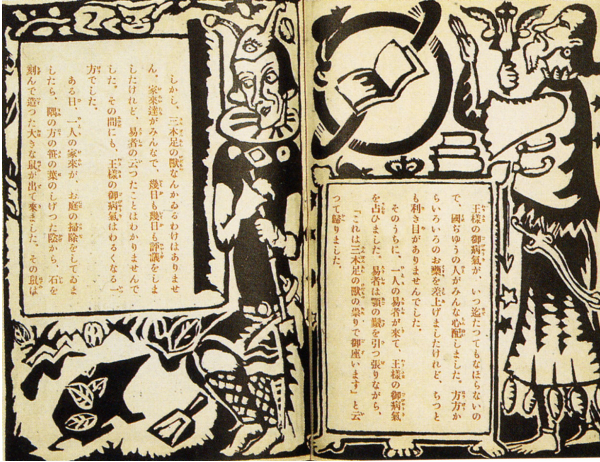 王樣の御病氣が、いつ迄たつてもなほらないの
で、國ぢゆうの人がみんな心配しました。方方か
らいろいろのお藥を差上げましたけれど、ちつと
も利き目がありませんでした。
そのうちに、一人の易者が來て、王樣の御病氣
を占ひました。易者は顎の鬚を引つ張りながら、
「これは三本足の獸の祟りで御座います」と云
つて歸りました。
しかし、三本足の獸なんかゐるわけはありませ
ん。家來達はみんなで、幾日も幾日も評議をしま
したけれど、易者の云つたことはわかりませんで
した。その間にも、王樣の御病氣はわるくなる一
方でした。
ある日、一人の家來が、お庭の掃除をしてゐま
したら、隅の方の笹の葉のしげつた陰から、石を
刻んで造つた大きな鼠が出て來ました。その鼠は